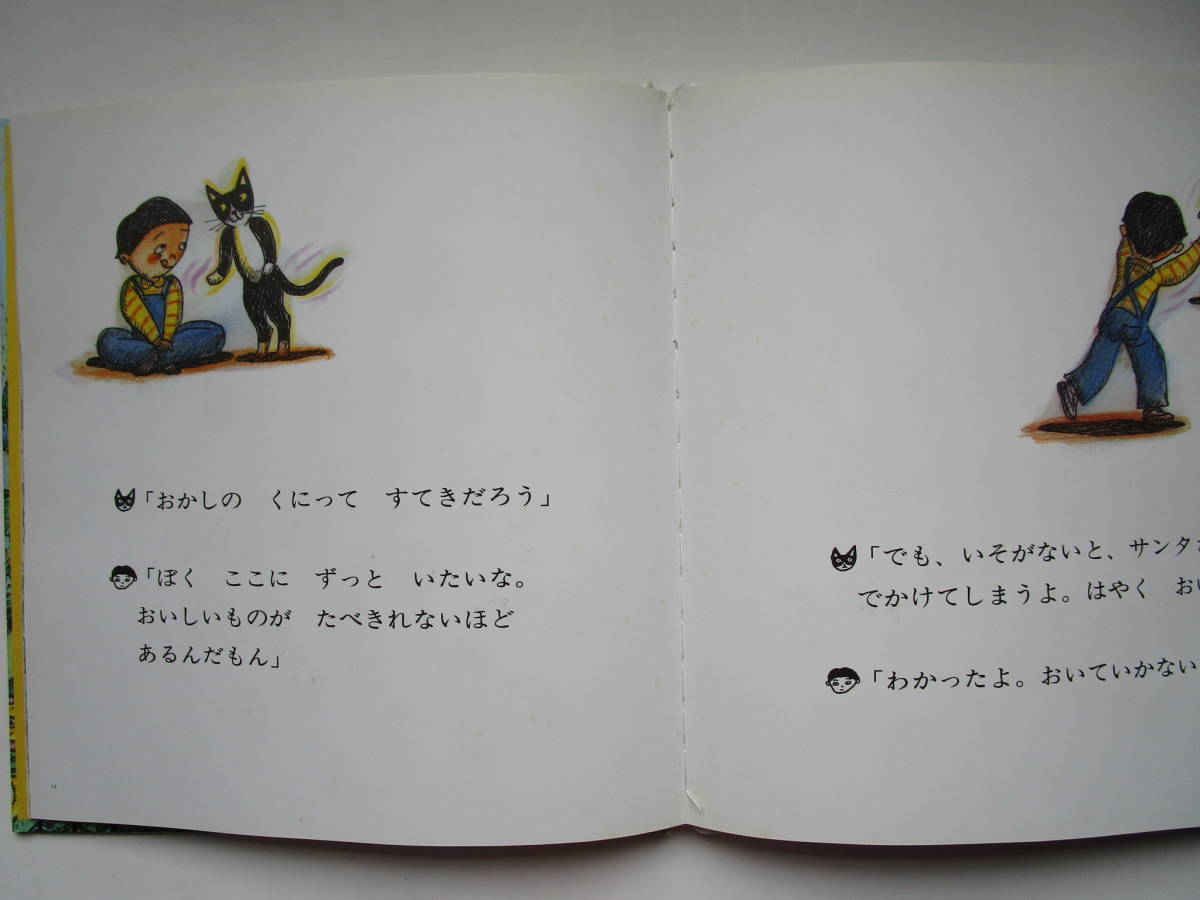 「おかしの　くにって　すてきだろう」
「ぼく　ここに　ずっと　いたいな。
おいしいものが　たべきれないほど
あるんだもん」
12
「でも、いそがないと、サンタ
でかけてしまうよ。はやく　お
「わかったよ。おいていかない